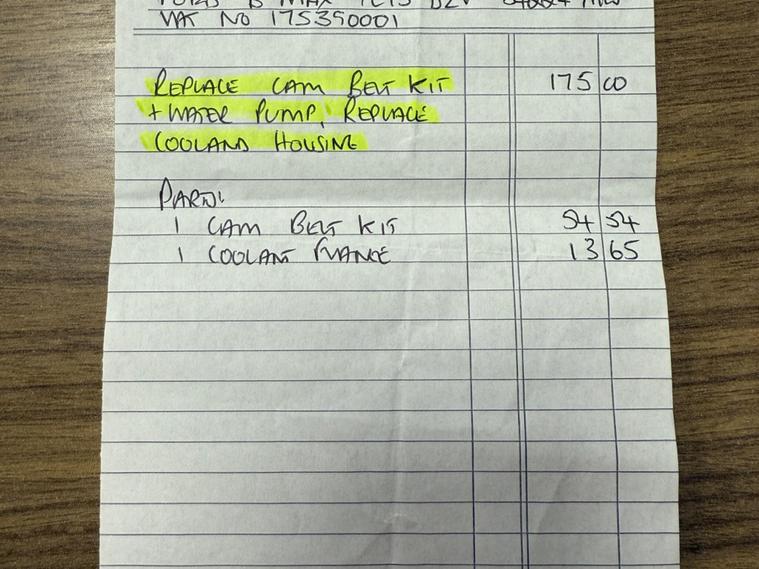 VAT NO 175390001
REPLACE CAM BELT KIT 175 00
+ WATER PUMP, REPLACE
COOLAND HOUSING
PARTS
1 CAM BELT KIT 54 54
1 COOLANT FLANGE 13 65